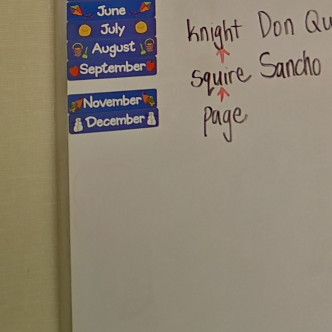 June
July
August
September
November
December
knight Don Qu
squire Sancho
page